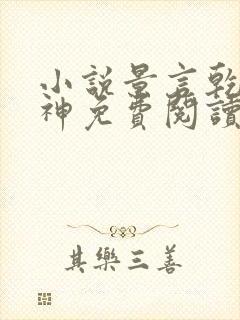 小說景言乾
神免費閱讀
其樂三善